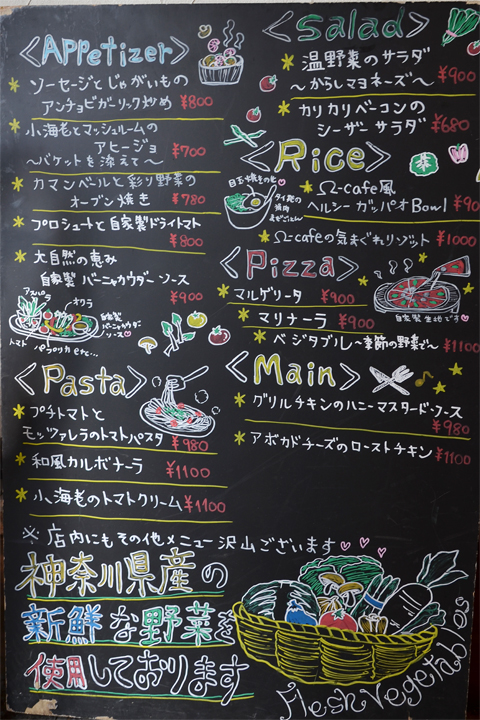 <Appetizer>
★ソーセージとじゃがいもの
アンチョビガーリック炒め ¥800
★小海老とマッシュルームの
アヒージョ
～バケットを添えて～ ¥700
★カマンベールと彩り野菜の
オーブン焼き ¥780
★プロシュートと自家製ドライトマト
¥800
★大自然の恵み
自家製 バーニャカウダーソース
¥900
アスパラ
オクラ
自家製
バーニャカウダ
ソース♡
トマト パプリカ etc...
<Pasta>
★プチトマトと
モッツァレラのトマトパスタ ¥980
★和風カルボナーラ ¥1100
★小海老のトマトクリーム ¥1100
<Salad>
★温野菜のサラダ
～からしマヨネーズ～ ¥900
★カリカリベーコンの
シーザーサラダ ¥680
<Rice>
目玉焼きのせ♡
タイ風の
焼肉
まぜごはん
★Ω-cafe風
ヘルシーガッパオBowl ¥90
★Ω-cafeの気まぐれリゾット ¥1000
<Pizza>
★マルゲリータ ¥900
★マリナーラ ¥900
★ベジタブル～季節の野菜で～ ¥1100
自家製生地です♡
<Main>
★グリルチキンのハニーマスタード・ソース
¥980
★アボカドチーズのローストチキン ¥1100
※店内にもその他メニュー沢山ございます♡♡♡
神奈川県産の
新鮮な野菜を
使用しております
Fresh Vegetables